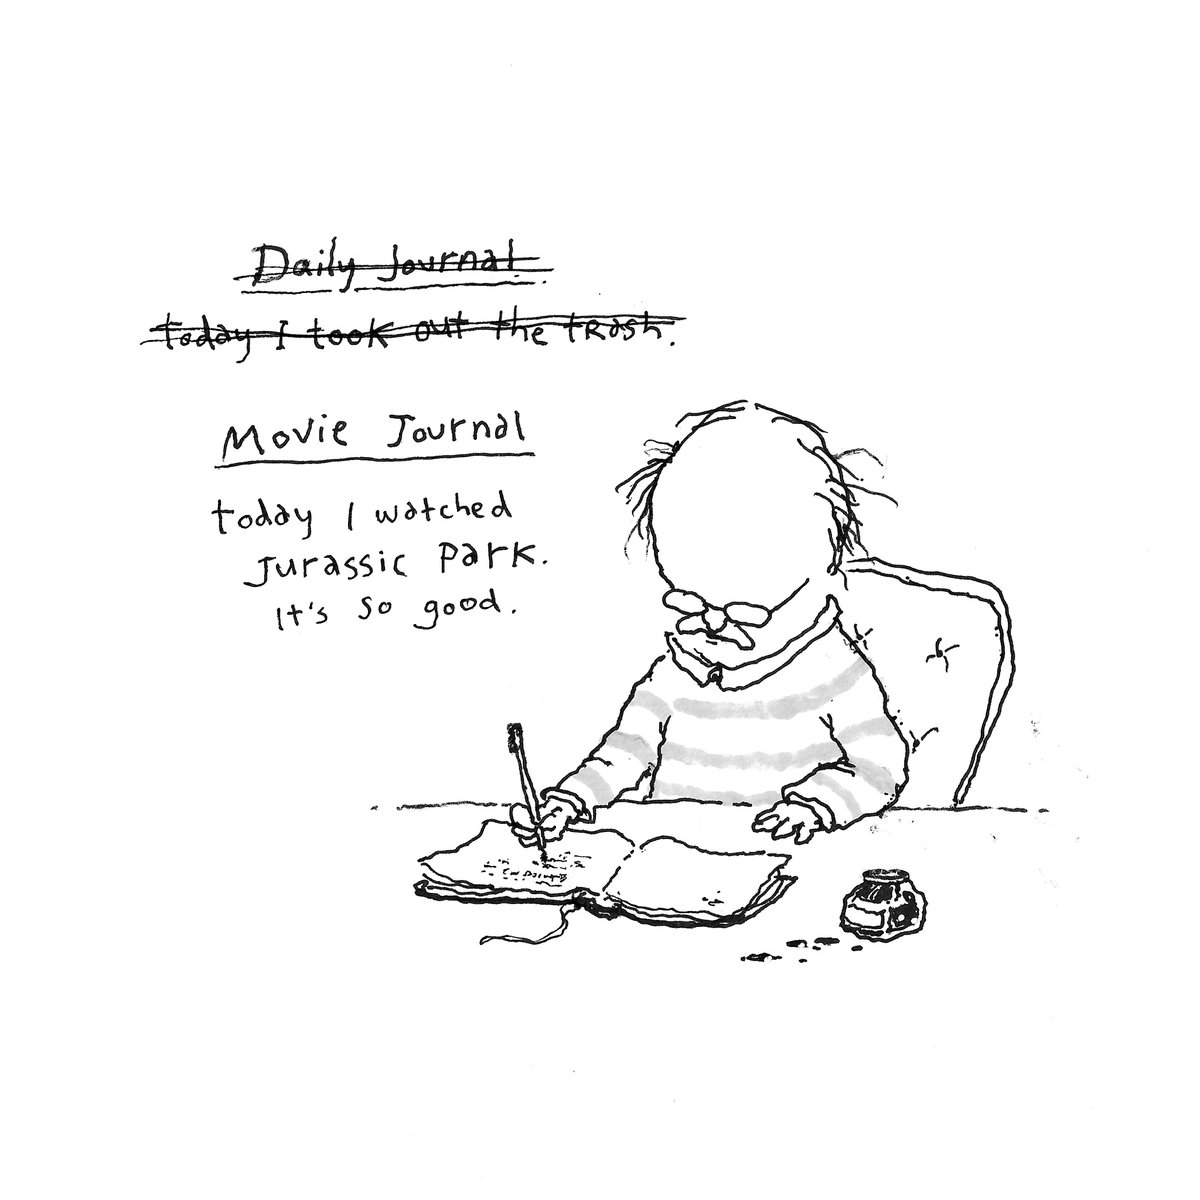 Daily Journal
today I took out the trash.
Movie Journal
today I watched
Jurassic Park.
It's so good.